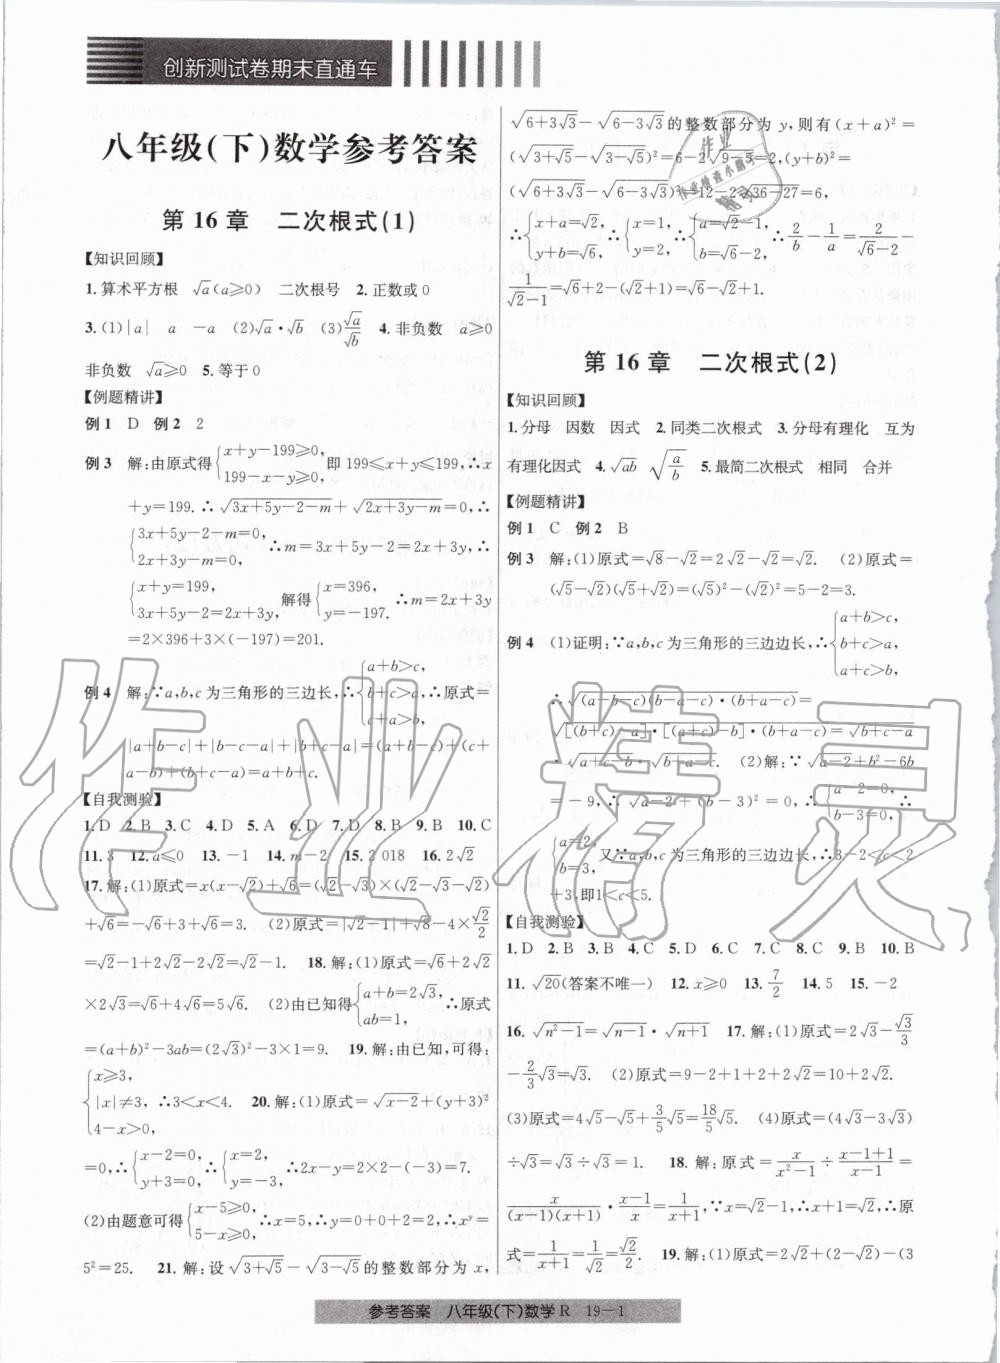 创新测试卷期末直通车
八年级(下)数学参考答案
第16章 二次根式(1)
【知识回顾】
1.算术平方根 √a(a⩾0) 二次根号 2.正数或0
3.(1)|a| a -a (2)√a·√b (3)√a/√b 4.非负数 a⩾0
非负数 √a⩾0 5.等于0
【例题精讲】
例1 D 例2 2
例3 解:由原式得{x+y-199⩾0, 199-x-y⩾0; 即199⩽x+y⩽199,∴x
+y=199.∴√(3x+5y-2-m)+√(2x+3y-m)=0,∴
{3x+5y-2-m=0, 2x+3y-m=0, ∴m=3x+5y-2=2x+3y,∴
{x+y=199, 3x+5y-2=2x+3y, 解得{x=396, y=-197. ∴m=2x+3y
=2×396+3×(-197)=201.
例4 解:∵a,b,c为三角形的三边长,∴{a+b>c, b+c>a, c+a>b, ∴原式=
|a+b-c|+|b-c-a|+|b+c-a|=(a+b-c)+(c+
a-b)+(b+c-a)=a+b+c.
【自我测验】
1.D 2.B 3.C 4.D 5.A 6.D 7.D 8.B 9.B 10.C
11.3 12.a⩽0 13.-1 14.m-2 15.2 018 16.2√2
17.解:(1)原式=x(x-√2)+√6=(√2-√3)(√2-√3-√2)
+√6=-√6+3+√6=3. (2)原式=|√2-1|+√8-4×√2/2
=√2-1+2√2-2√2=√2-1. 18.解:(1)原式=√6+2√2
×2√3=√6+4√6=5√6. (2)由已知得{a+b=2√3, ab=1, ∴原式
=(a+b)²-3ab=(2√3)²-3×1=9. 19.解:由已知,可得:
{x⩾3, |x|≠3, 4-x>0, ∴3<x<4. 20.解:(1)原式=√(x-2)+(y+3)²
=0,∴{x-2=0, y+3=0, ∴{x=2, y=-3, ∴2x-y=2×2-(-3)=7.
(2)由题意可得{x-5⩾0, 5-x⩾0, ∴x=5,∴y=0+0+2=2,∴xʸ=
5²=25. 21.解:设√(3+√5)-√(3-√5)的整数部分为x,
√(6+3√3)-√(6-3√3)的整数部分为y,则有(x+a)²=
(√(3+√5)-√(3-√5))²=6-2√(9-5)=2,(y+b)²=
(√(6+3√3)-√(6-3√3))²=12-2√(36-27)=6,
∴{x+a=√2, y+b=√6, ∴{x=1, y=2, ∴{a=√2-1, b=√6-2, ∴2/b-1/a=2/(√6-2)-
1/(√2-1)=√6+2-(√2+1)=√6-√2+1.
第16章 二次根式(2)
【知识回顾】
1.分母 因数 因式 2.同类二次根式 3.分母有理化 互为
有理化因式 4.√(ab) √(a/b) 5.最简二次根式 相同 合并
【例题精讲】
例1 C 例2 B
例3 解:(1)原式=√8-√2=2√2-√2=√2. (2)原式=
(√5-√2)(√5+√2)=(√5)²-(√2)²=5-2=3.
例4 (1)证明:∵a,b,c为三角形的三边边长,∴{a+b>c, b+c>a, a+c>b,
∴√((a-b+c)(b-a-c)·(b+a-c))=
√([(b+c)-a]·[(a+c)-b]·(b+a-c))=√(b+c-a)
·√(a+c-b)·√(b+a-c). (2)解:∵√(a-2)+b²-6b
=-9,∴√(a-2)+(b-3)²=0,∴{a-2=0, b-3=0, ∴
{a=2, b=3, 又∵a,b,c为三角形的三边边长,∴3-2<c<2
+3,即1<c<5.
【自我测验】
1.D 2.B 3.B 4.C 5.D 6.C 7.B 8.C 9.B 10.B
11.√20(答案不唯一) 12.x⩾0 13.7/2 14.5 15.-2
16.√(n²-1)=√(n-1)·√(n+1) 17.解:(1)原式=2√3-√3/3
-2/3√3=√3. (2)原式=9-2+1+2+2√2=10+2√2.
(3)原式=4√5-√5+3/5√5=18/5√5. (4)原式=(4√3-3√3)
÷√3=√3÷√3=1. 18.解:原式=x/(x²-1)÷(x-1+1)/(x-1)=
x/((x-1)(x+1))·(x-1)/x=1/(x+1),∵x=√2-1,∴原
式=1/(x+1)=1/√2=√2/2. 19.解:(1)原式=2√2+(2-√2)-(3
参考答案 八年级(下)数学R 19-1
作业精灵